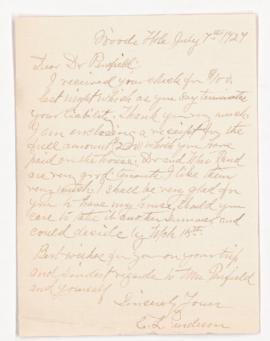 Woods Hole July 7th 1927
Dear Dr
I received your check for $100.
last night which as you say terminates
your liability. Thank you very much.
I am enclosing a receipt for the
full amount which you have
paid on the house. Dr and Mrs
are very good tenants I like them
very much. I shall be very glad for
you to have my house should you
care to take it another summer and
could decide by 15th.
Best wishes for you on your trip
and kindest regards to Mrs
and yourself
Sincerely Yours
E. L.